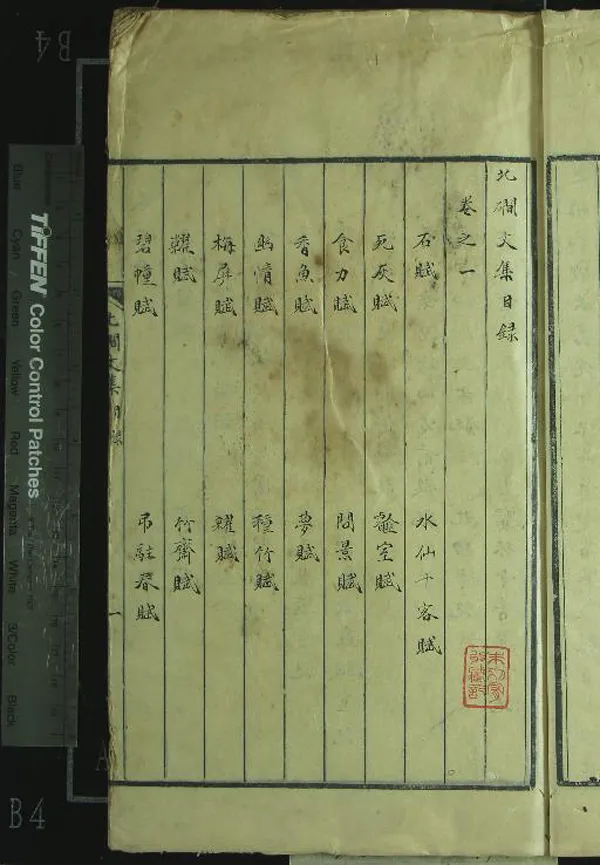 北磵文集目録
卷之一
石賦
水仙十客賦
死灰賦
龕室賦
食力賦
問景賦
香魚賦
夢賦
幽情賦
種竹賦
梅屏賦
糶賦
糶賦
竹齋賦
碧幢賦
弔駐春賦
北磵文集目録
一
TIFFEN Color Control Patches
Blue
Cyan
Green
Yellow
Red
Magenta
White
3/Color
Black
B4
B4
A